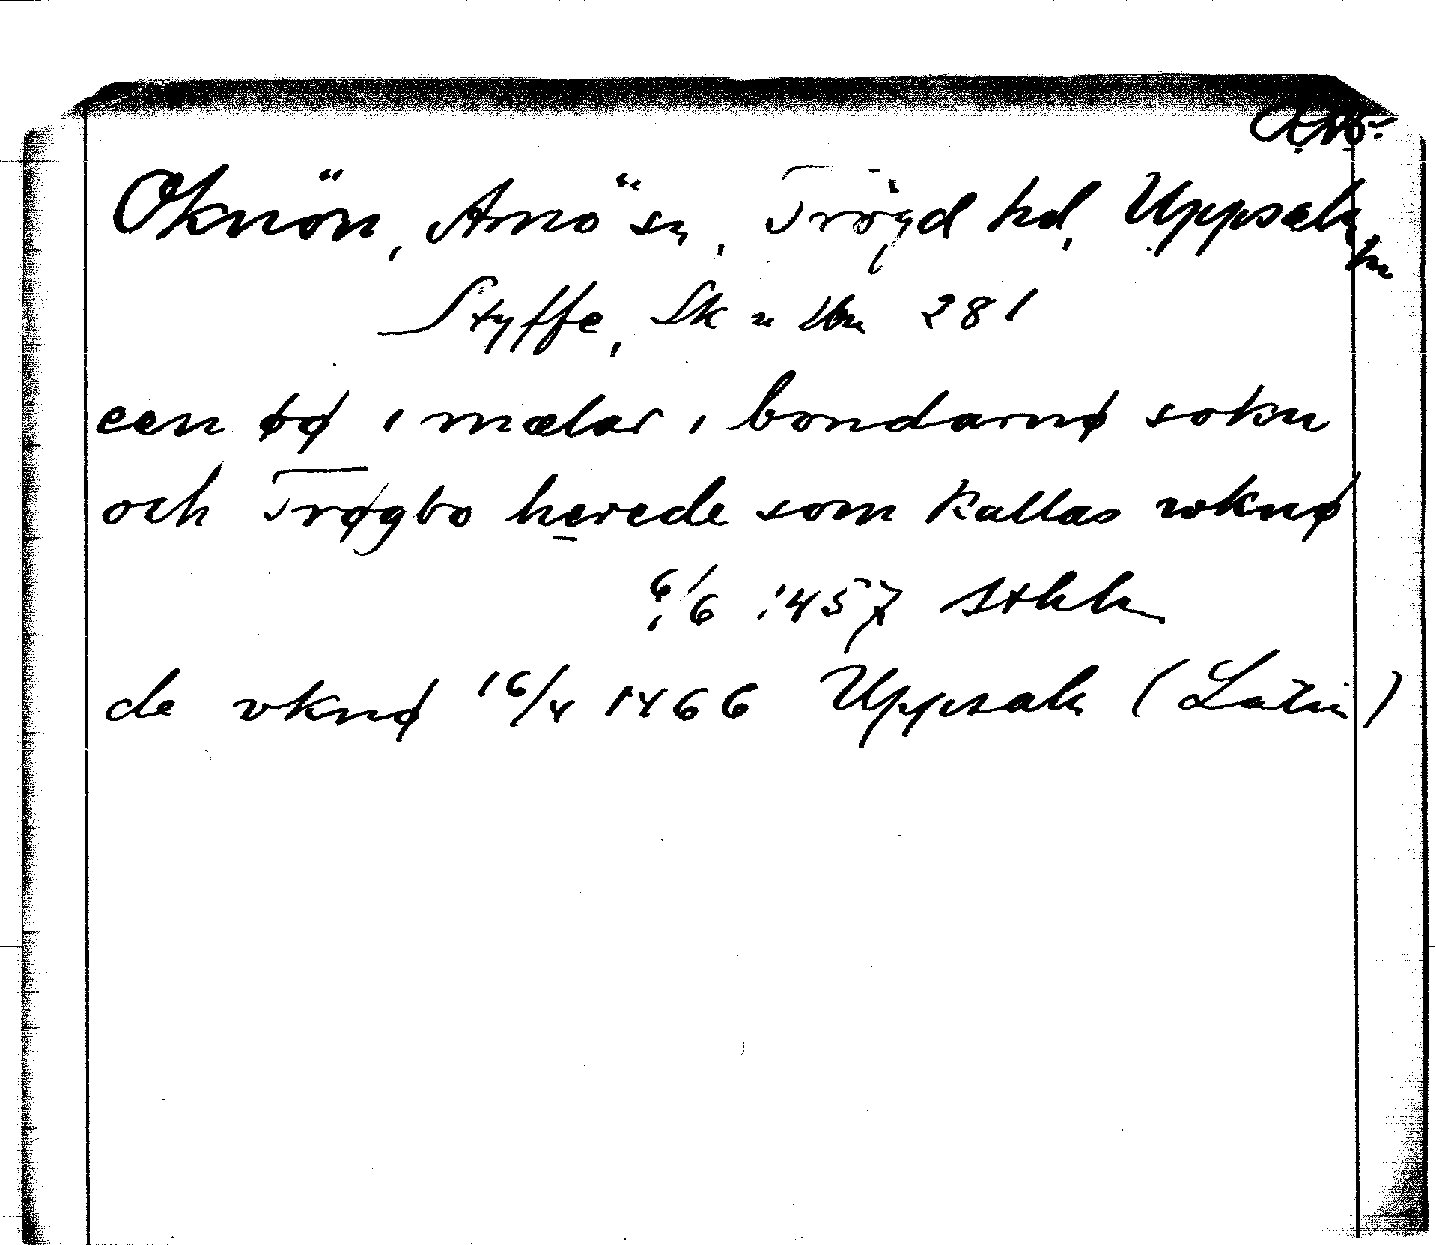 Oknön, Arnö sn, Trögd hd, Uppsala
län
Styffe, Sk u Un 281
een øø i mælar i bondarnø sokn
och Trøgbo herede som kallas wknø
6/6 1457 Sthlm
de vknø 16/4 1466 Uppsala (Latin)